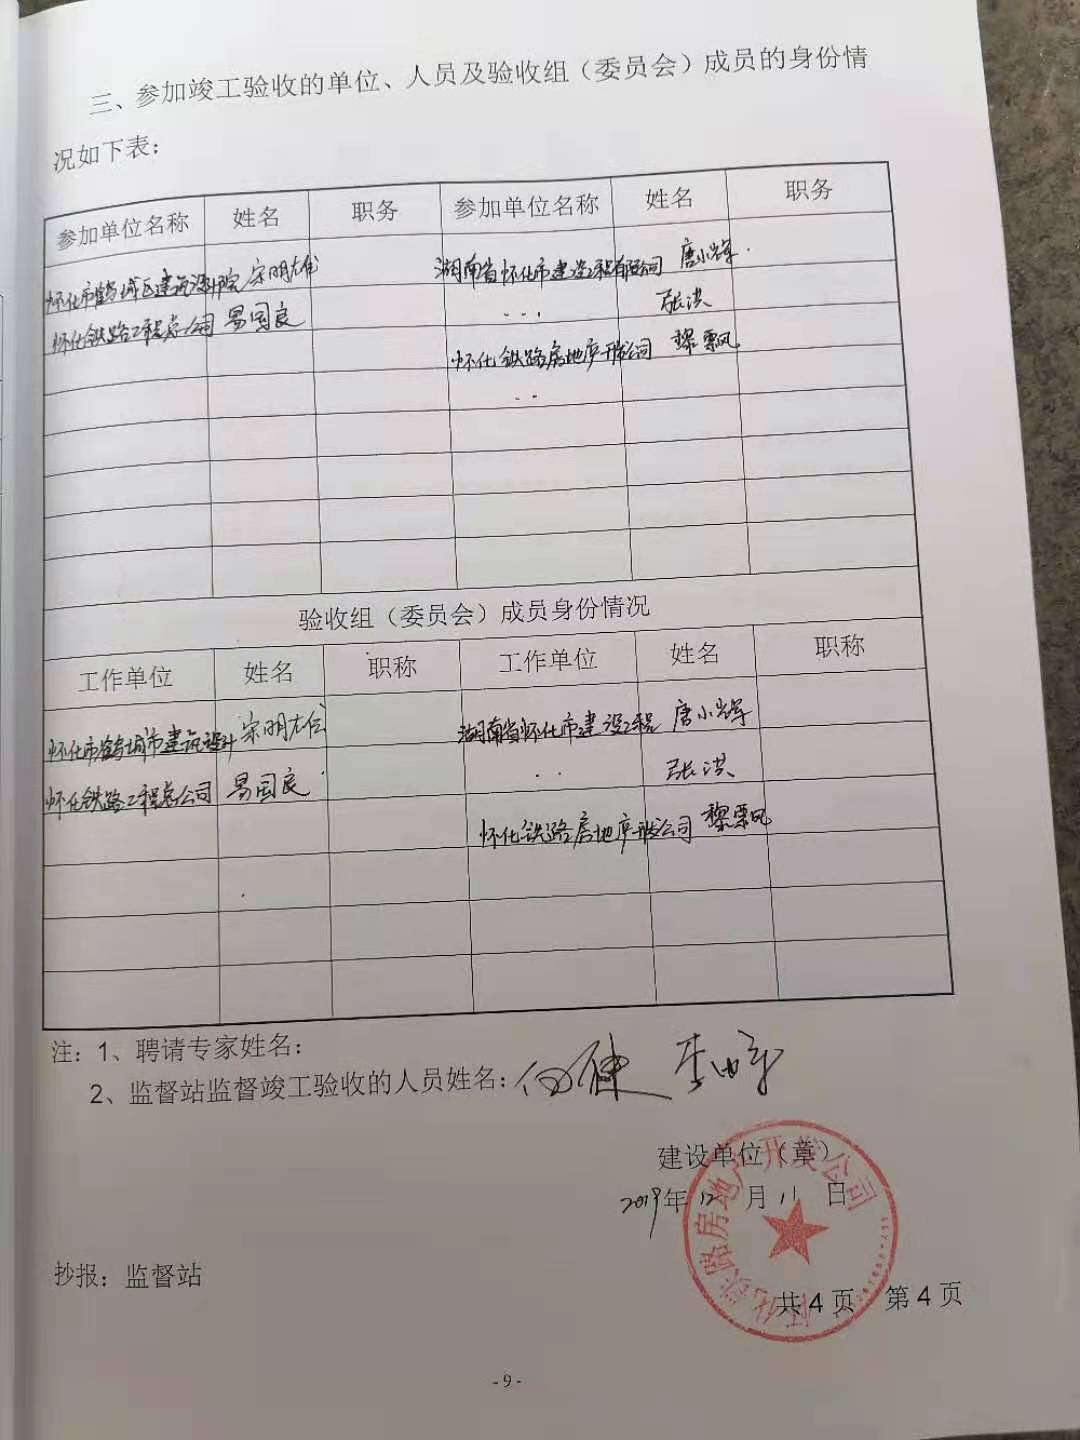 三、参加竣工验收的单位、人员及验收组（委员会）成员的身份情
况如下表：
参加单位名称 姓名 职务 参加单位名称 姓名 职务
怀化市鹤城区建筑设计院 宋明 湖南省怀化市建设工程有限公司 唐小辉
怀化铁路工程总公司 易国良 张洪
怀化铁路房地产开发公司 黎飘
验收组（委员会）成员身份情况
工作单位 姓名 职称 工作单位 姓名 职称
怀化市鹤城市建筑设计 宋明 湖南省怀化市建设工程 唐小辉
怀化铁路工程总公司 易国良 张洪
怀化铁路房地产开发公司 黎飘
注：1、聘请专家姓名：
2、监督站监督竣工验收的人员姓名：
建设单位（章）
2019年12月11日
怀化铁路房地产开发公司
抄报：监督站
共4页 第4页
-9-